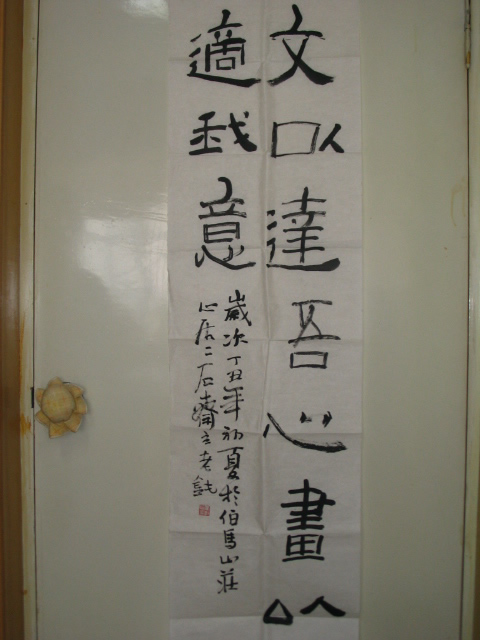 文以達吾心畫以
適我意
歲次丁丑年初夏於伯馬山莊
心居二石齋主老鈍